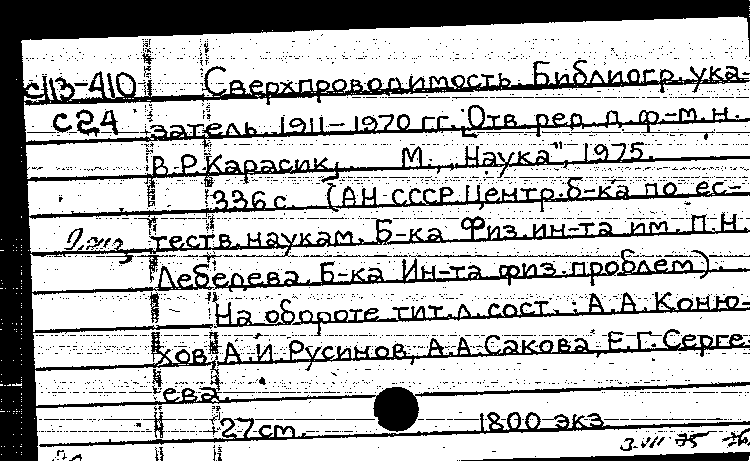 С113-410 Сверхпроводимость. Библиогр.ука-
С24 затель. 1911-1970 гг. Отв. ред. д. ф.-м.н.
В.Р.Карасик. М., „Наука", 1975.
336 с. (АН СССР. Центр.б-ка по ес-
теств.наукам. Б-ка Физ.ин-та им. П.Н.
Лебедева. Б-ка Ин-та физ.проблем).
На обороте тит.л. сост.: А.А. Коню-
хов, А.И. Русинов, А.А. Сакова, Е.Г. Серге-
ева.
27cm. 1800 экз
3.VII 75